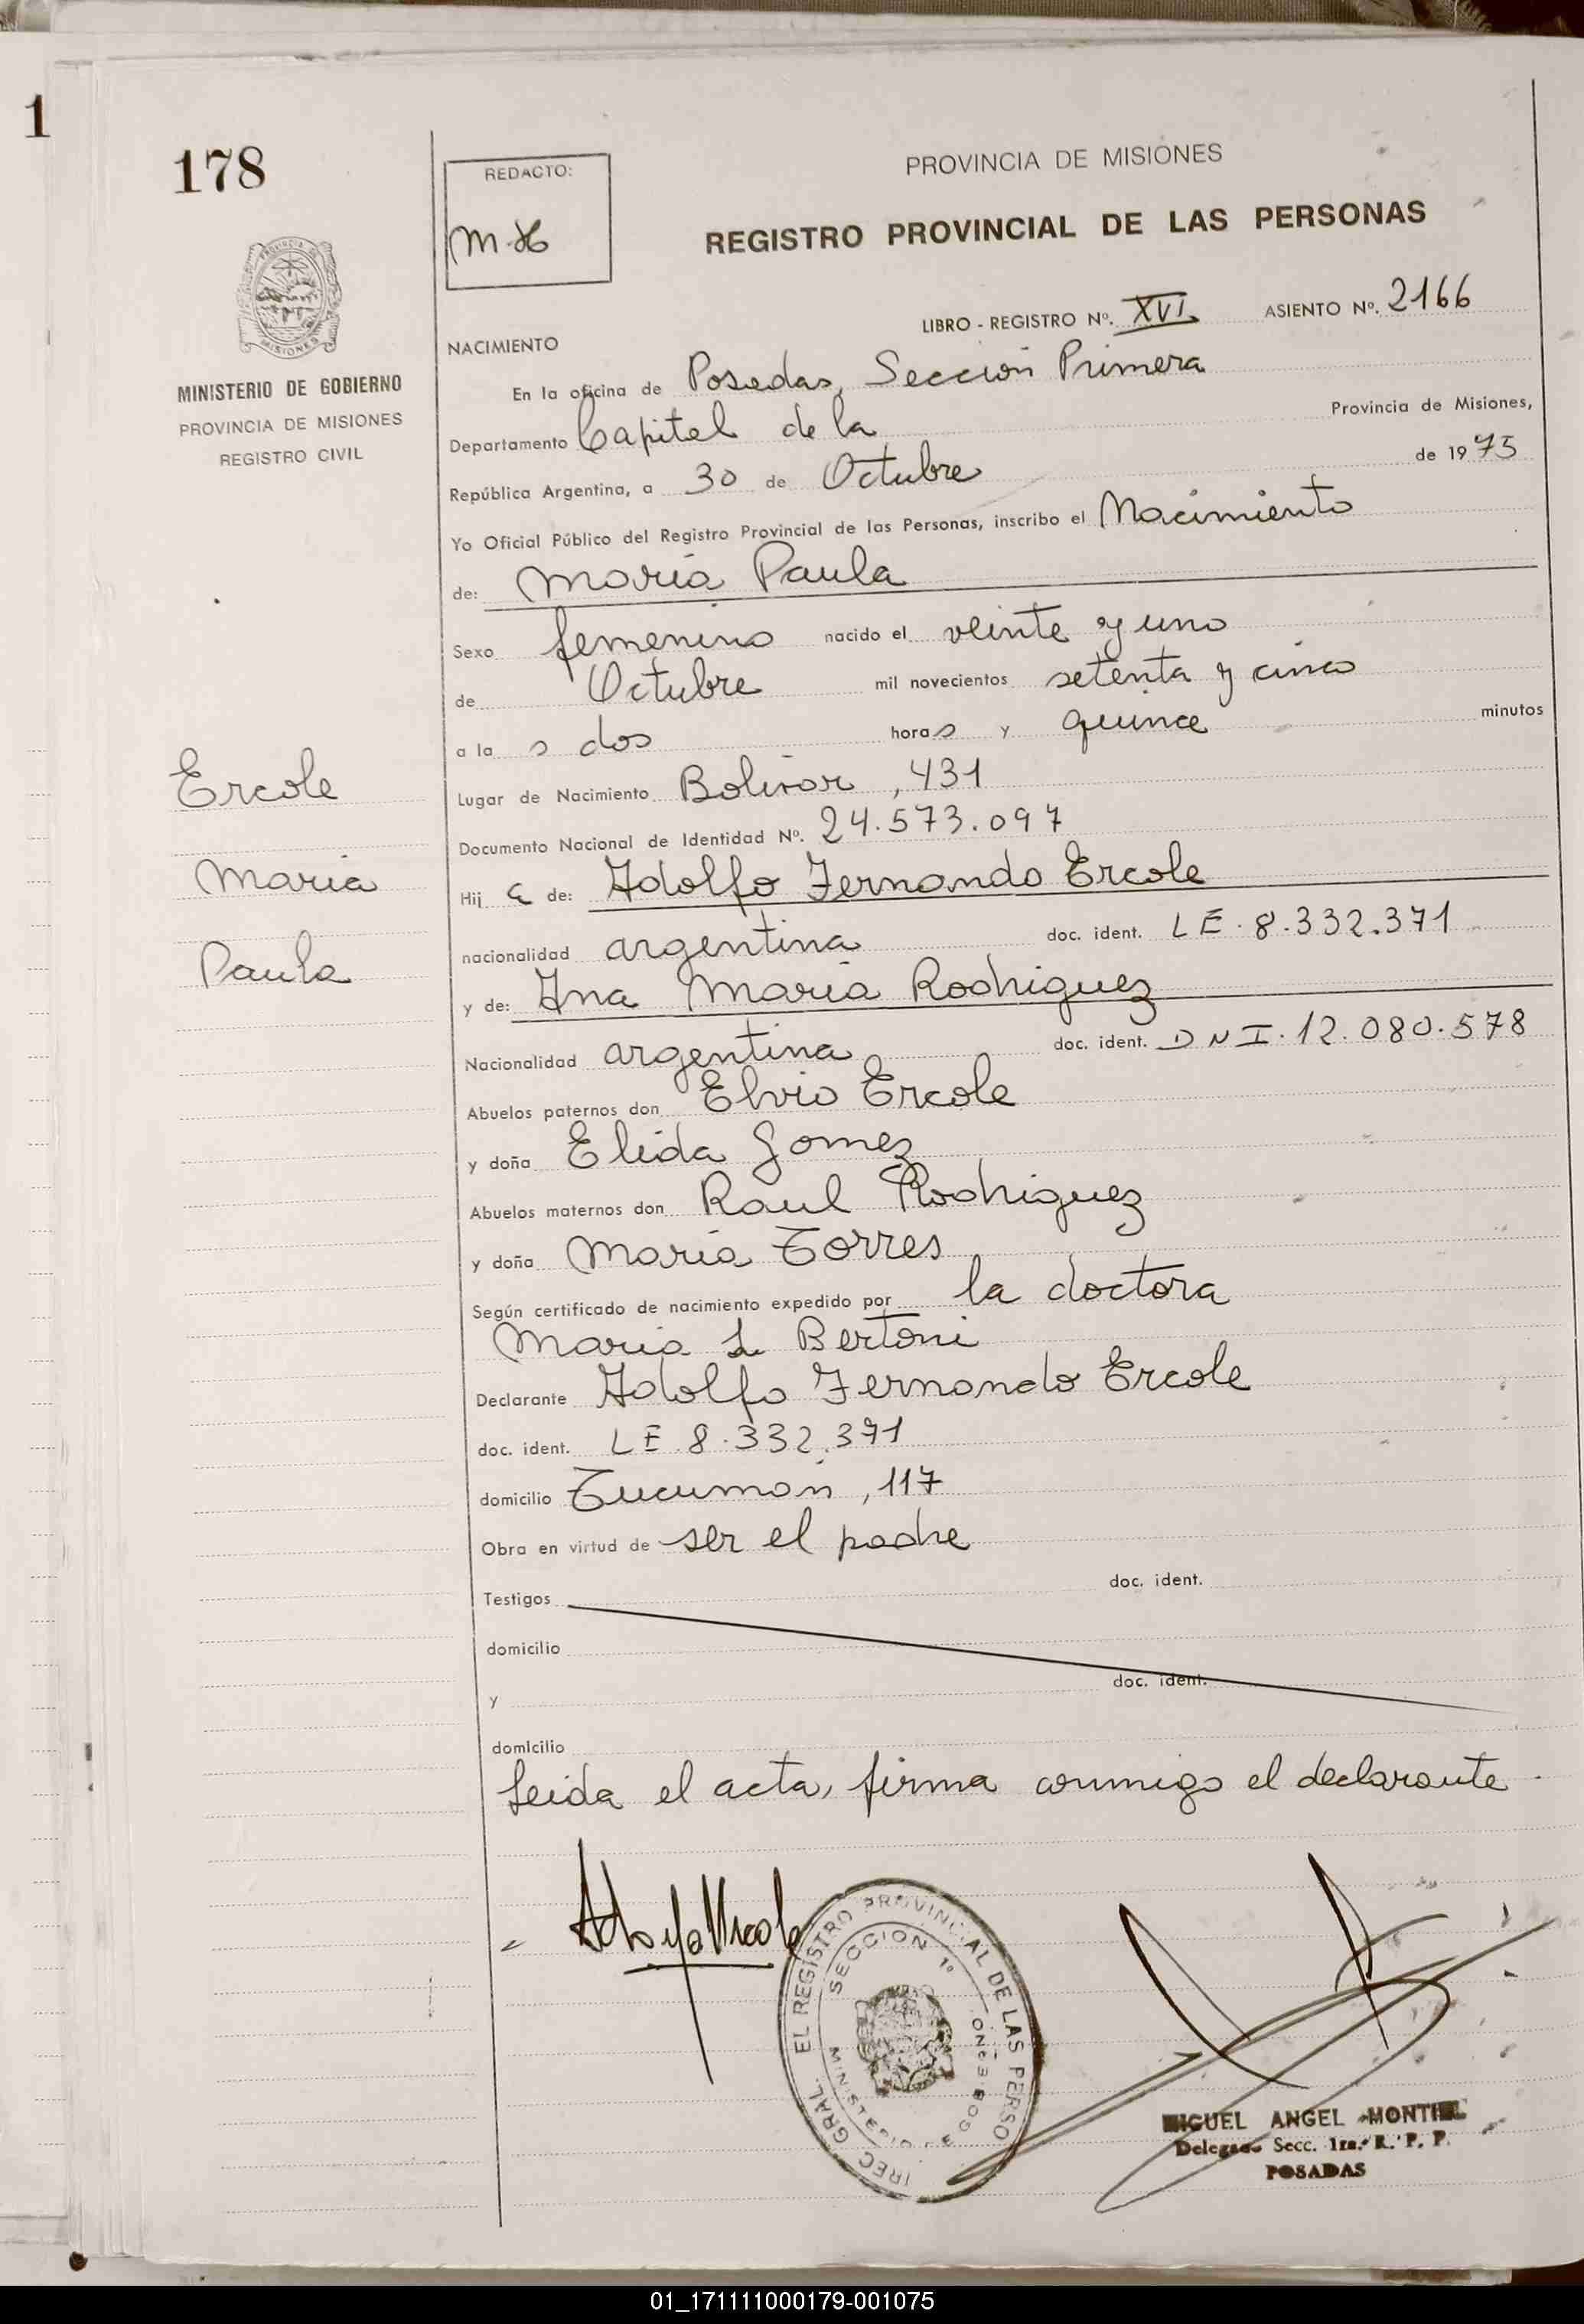 1
178
REDACTO:
M.H
PROVINCIA DE MISIONES
REGISTRO PROVINCIAL DE LAS PERSONAS
PROVINCIA DE
MISIONES
MINISTERIO DE GOBIERNO
PROVINCIA DE MISIONES
REGISTRO CIVIL
LIBRO - REGISTRO Nº. XVI ASIENTO Nº. 2166
NACIMIENTO
En la oficina de Posadas, Sección Primera
Departamento Capital de la Provincia de Misiones,
República Argentina, a 30 de Octubre de 1975
Yo Oficial Público del Registro Provincial de las Personas, inscribo el Nacimiento
de: María Paula
Sexo femenino nacido el veinte y uno
de Octubre mil novecientos setenta y cinco
a la s dos horas y quince minutos
Lugar de Nacimiento Bolivar, 431
Documento Nacional de Identidad Nº. 24.573.097
Hij a de: Adolfo Fernando Ercole
nacionalidad argentina doc. ident. LE.8.332.371
y de: Ana María Rodriguez
Nacionalidad argentina doc. ident. DNI.12.080.578
Abuelos paternos don Elvio Ercole
y doña Elida Gomez
Abuelos maternos don Raul Rodriguez
y doña María Torres
Según certificado de nacimiento expedido por la doctora
María L Bertoni
Declarante Adolfo Fernando Ercole
doc. ident. LE.8.332.371
domicilio Tucumán, 117
Obra en virtud de ser el padre
Testigos doc. ident.
domicilio
y doc. ident.
domicilio
Leida el acta, firma conmigo el declarante.
Ercole
María
Paula
Adolfo Ercole
IREC. GRAL. EL REGISTRO PROVINCIAL DE LAS PERSO
SECCION 1º
MINISTERIO DE GOBIERNO
MIGUEL ANGEL MONTIEL
Delegado Secc. 1ra. R. P. P.
POSADAS
01_171111000179-001075